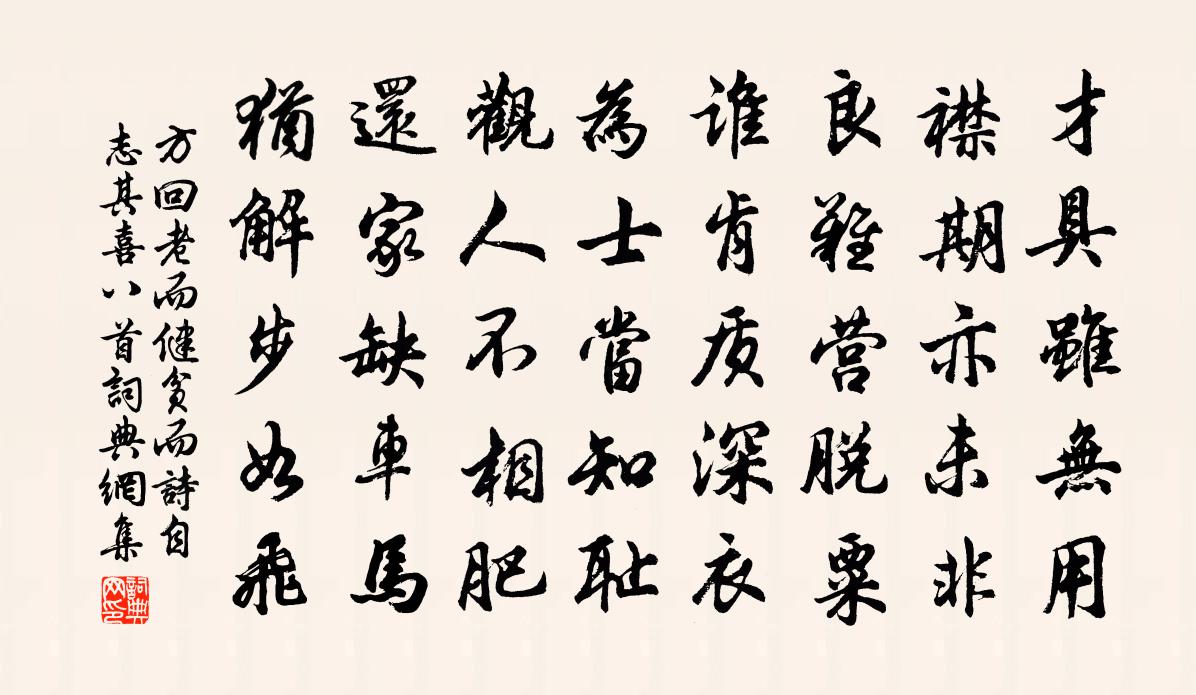 才具雖無用
襟期亦未非
良難营脱粟
谁肯质深衣
為士當知耻
觀人不相肥
還家缺車馬
猶解步如飛
方回老而健貧而詩自
志其喜八首詞典網集
詞典网印